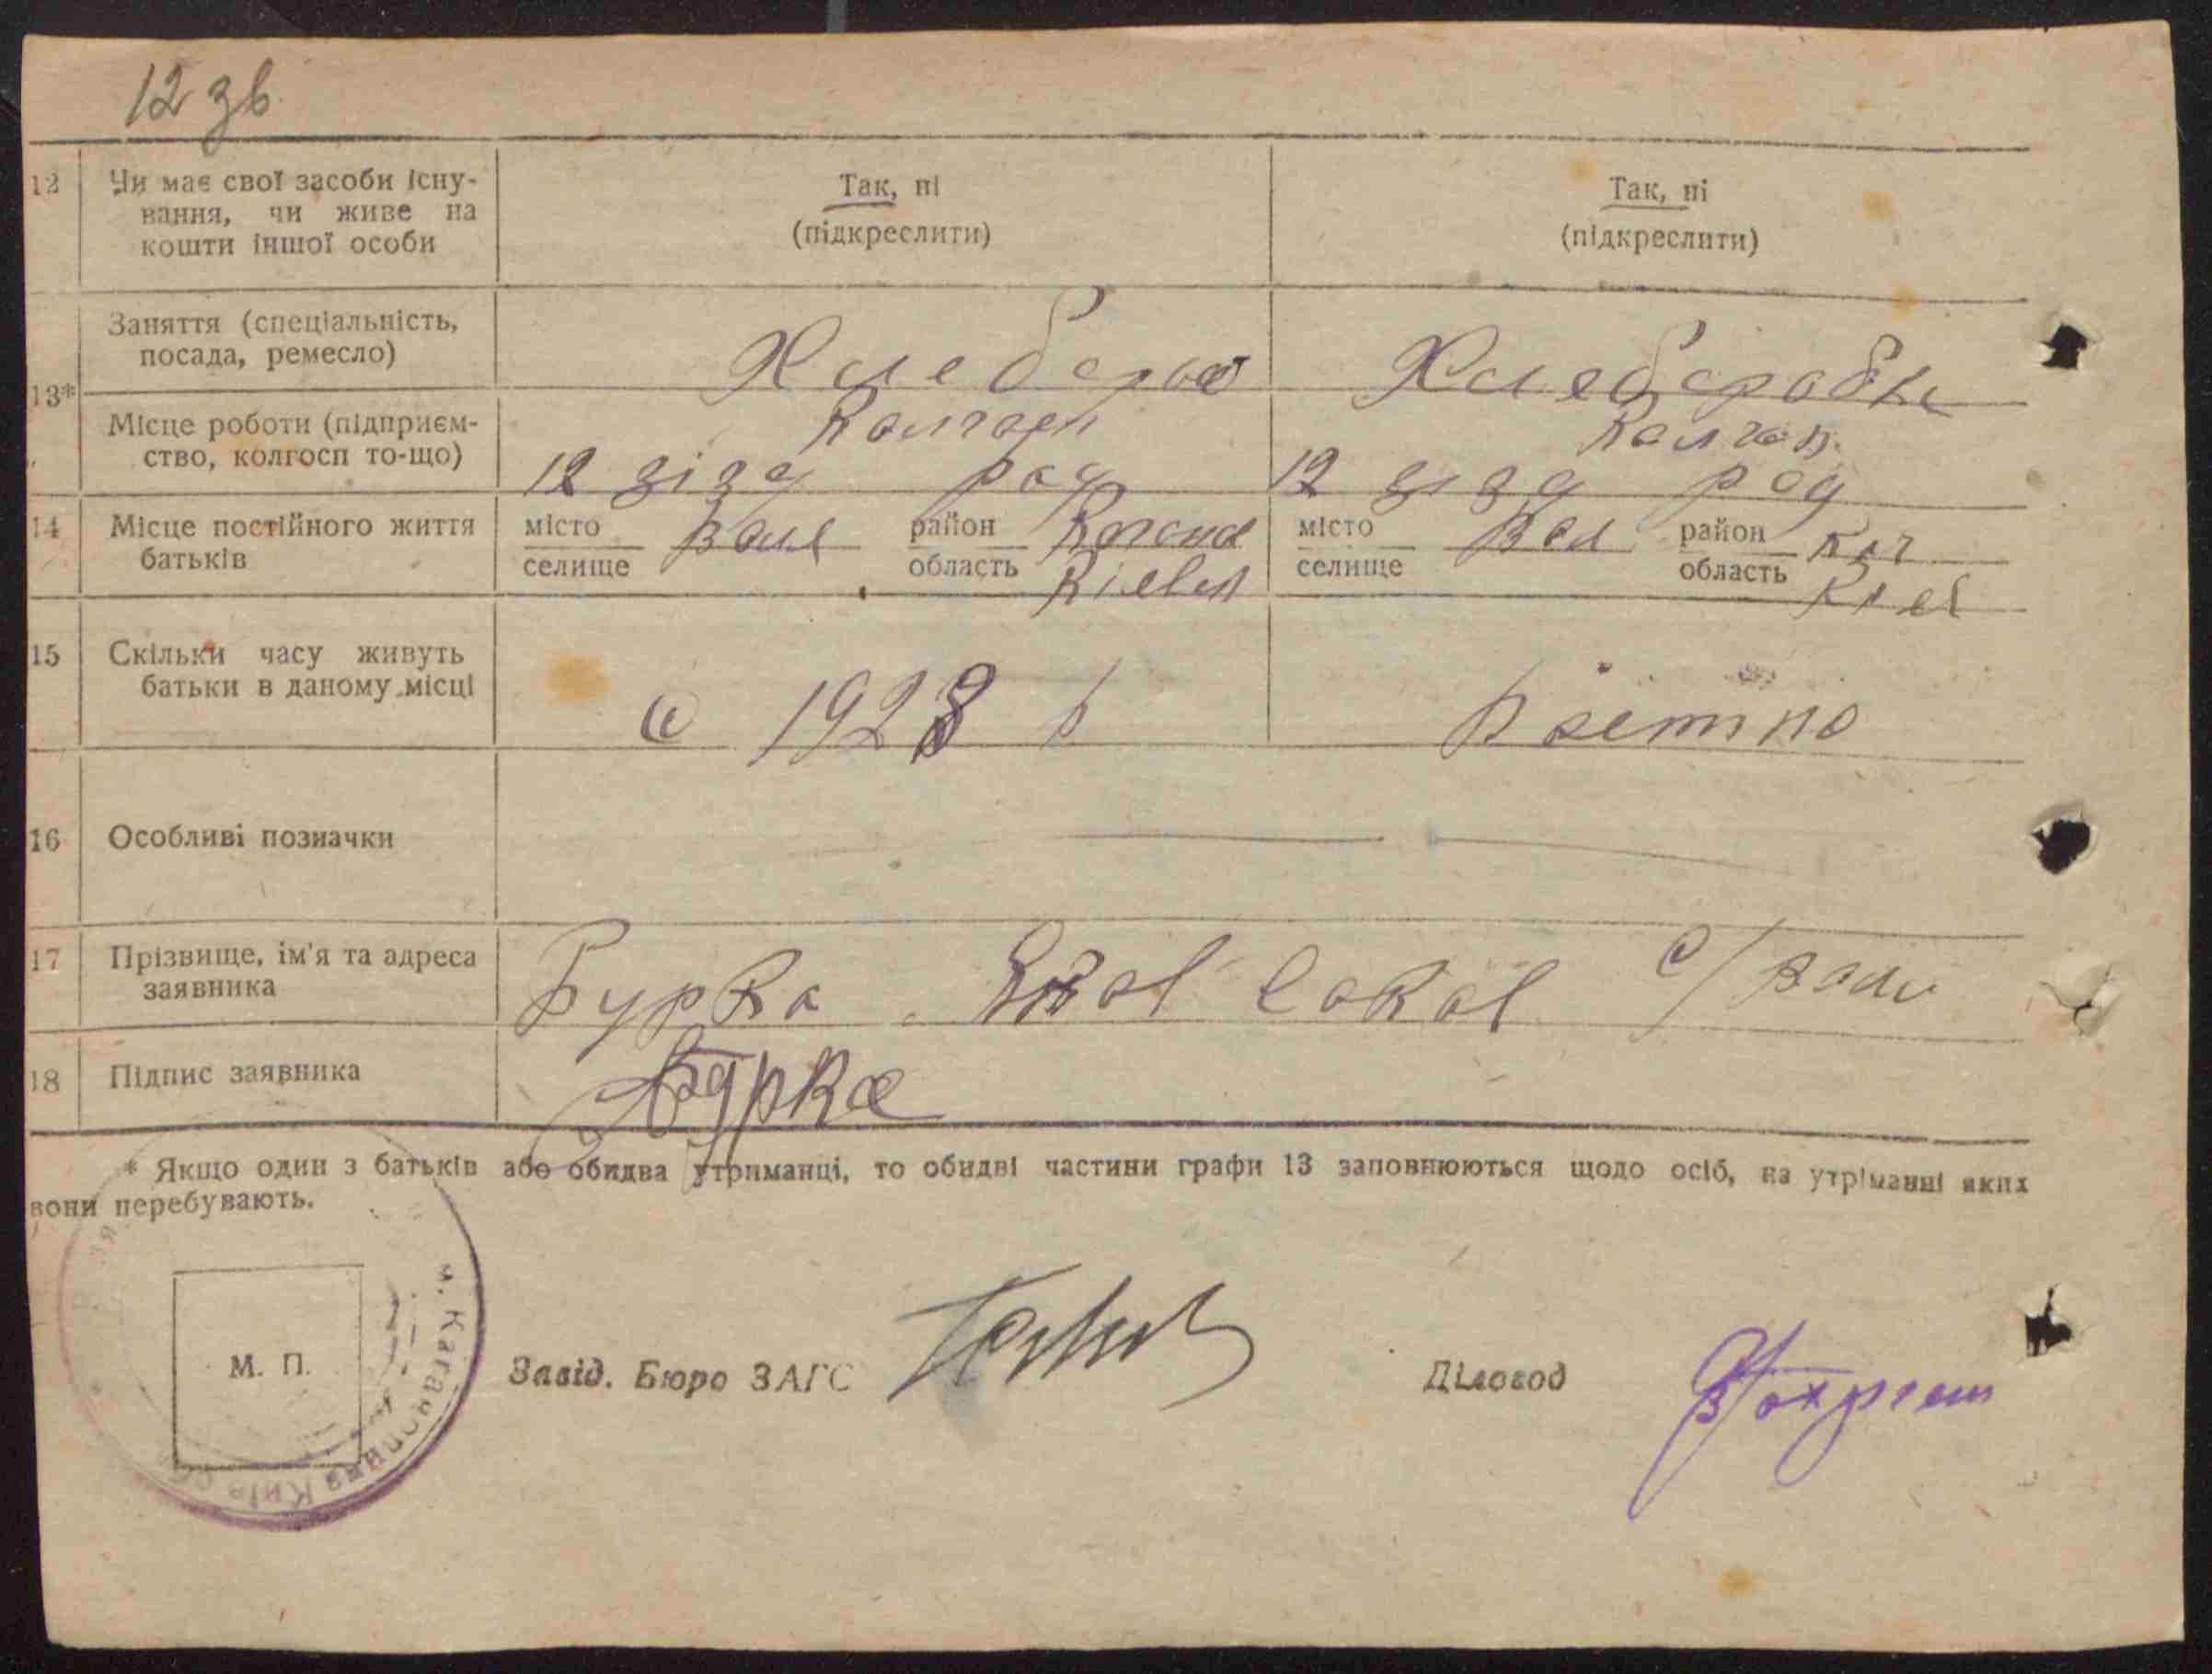 12 зв
12 Чи має свої засоби існу-
вання, чи живе на
кошти іншої особи
Так, ні
(підкреслити)
Так, ні
(підкреслити)
13*
Заняття (спеціальність,
посада, ремесло)
Хлебороб
Хлеборобка
Місце роботи (підприєм-
ство, колгосп то-що)
Колгосп
12 зізд рад
Колгосп
12 зізд рад
14 Місце постійного життя
батьків
місто
селище
район
область
Київск
місто
селище
район
Каг
область
Киев
15 Скільки часу живуть
батьки в даному місці
с 1928 р
постіно
16 Особливі позначки
17 Прізвище, ім'я та адреса
заявника
Бурка Яков с/ради
18 Підпис заявника
Бурка
* Якщо один з батьків або обидва утриманці, то обидві частини графи 13 заповнюються щодо осіб, на утріманні яких
вони перебувають.
м. Кагановича Київ
М. П.
Завід. Бюро ЗАГС
Діловод